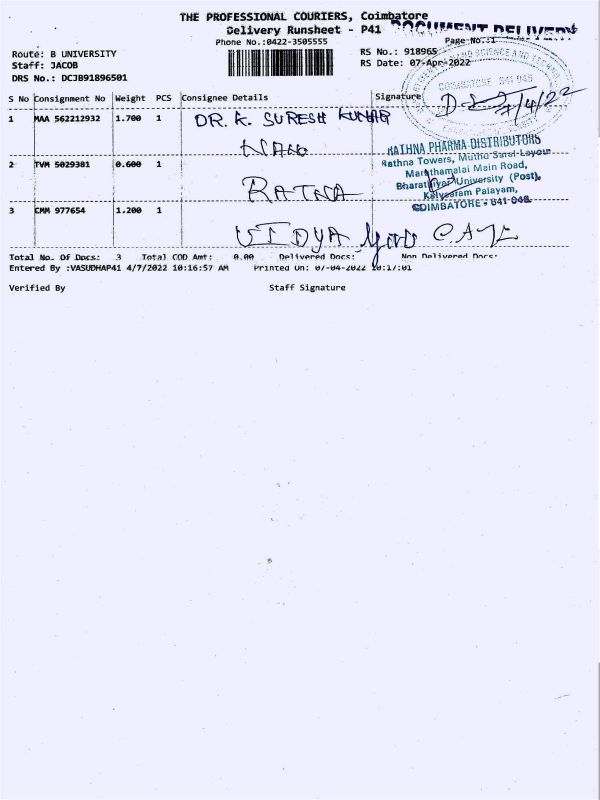 THE PROFESSIONAL COURIERS, Coimbatore
DOCUMENT DELIVERY
Delivery Runsheet - P41
Phone No.:0422-3505555
Page No.:1
Route: B UNIVERSITY
RS No.: 918965
Staff: JACOB
RS Date: 07-Apr-2022
DRS No.: DCJB91896501
SCIENCE AND
COIMBATORE 641 046
S No Consignment No Weight PCS Consignee Details Signature
7/4/22
1 MAA 562212932 1.700 1 DR. K. SURESH KUMAR
NANO
RATHNA PHARMA DISTRIBUTORS
2 TVM 5029381 0.600 1
Rathna Towers, Muthu Layout
Maruthamalai Main Road,
RATNA
Bharathiyar University (Post),
Kalveeram Palayam,
COIMBATORE - 641 046.
3 CMM 977654 1.200 1
VIDYA
Total No. Of Docs: 3 Total COD Amt: 0.00 Delivered Docs: Non Delivered Docs:
Entered By :VASUDHAP41 4/7/2022 10:16:57 AM Printed On: 07-04-2022 10:17:01
Verified By Staff Signature